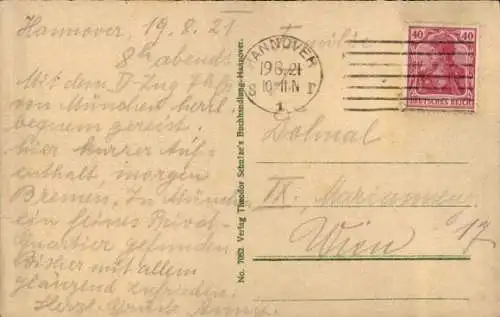 Hannover, 19.8.21
8h abends
Mit dem D-Zug
von München herrl.
bequem gereist.
hier kurzer Auf-
enthalt, morgen
Bremen. In Münch.
ein feines Privat-
Quartier gefunden.
Bisher mit allem
glänzend zufrieden.
Herzl. Gruß
No. 7052. Verlag Theodor Schulze's Buchhandlung Hannover.
HANNOVER
19.8.21
10-11 N
1
40 40
DEUTSCHES REICH
Familie
Dolmal
IX. Mariannen
Wien 17